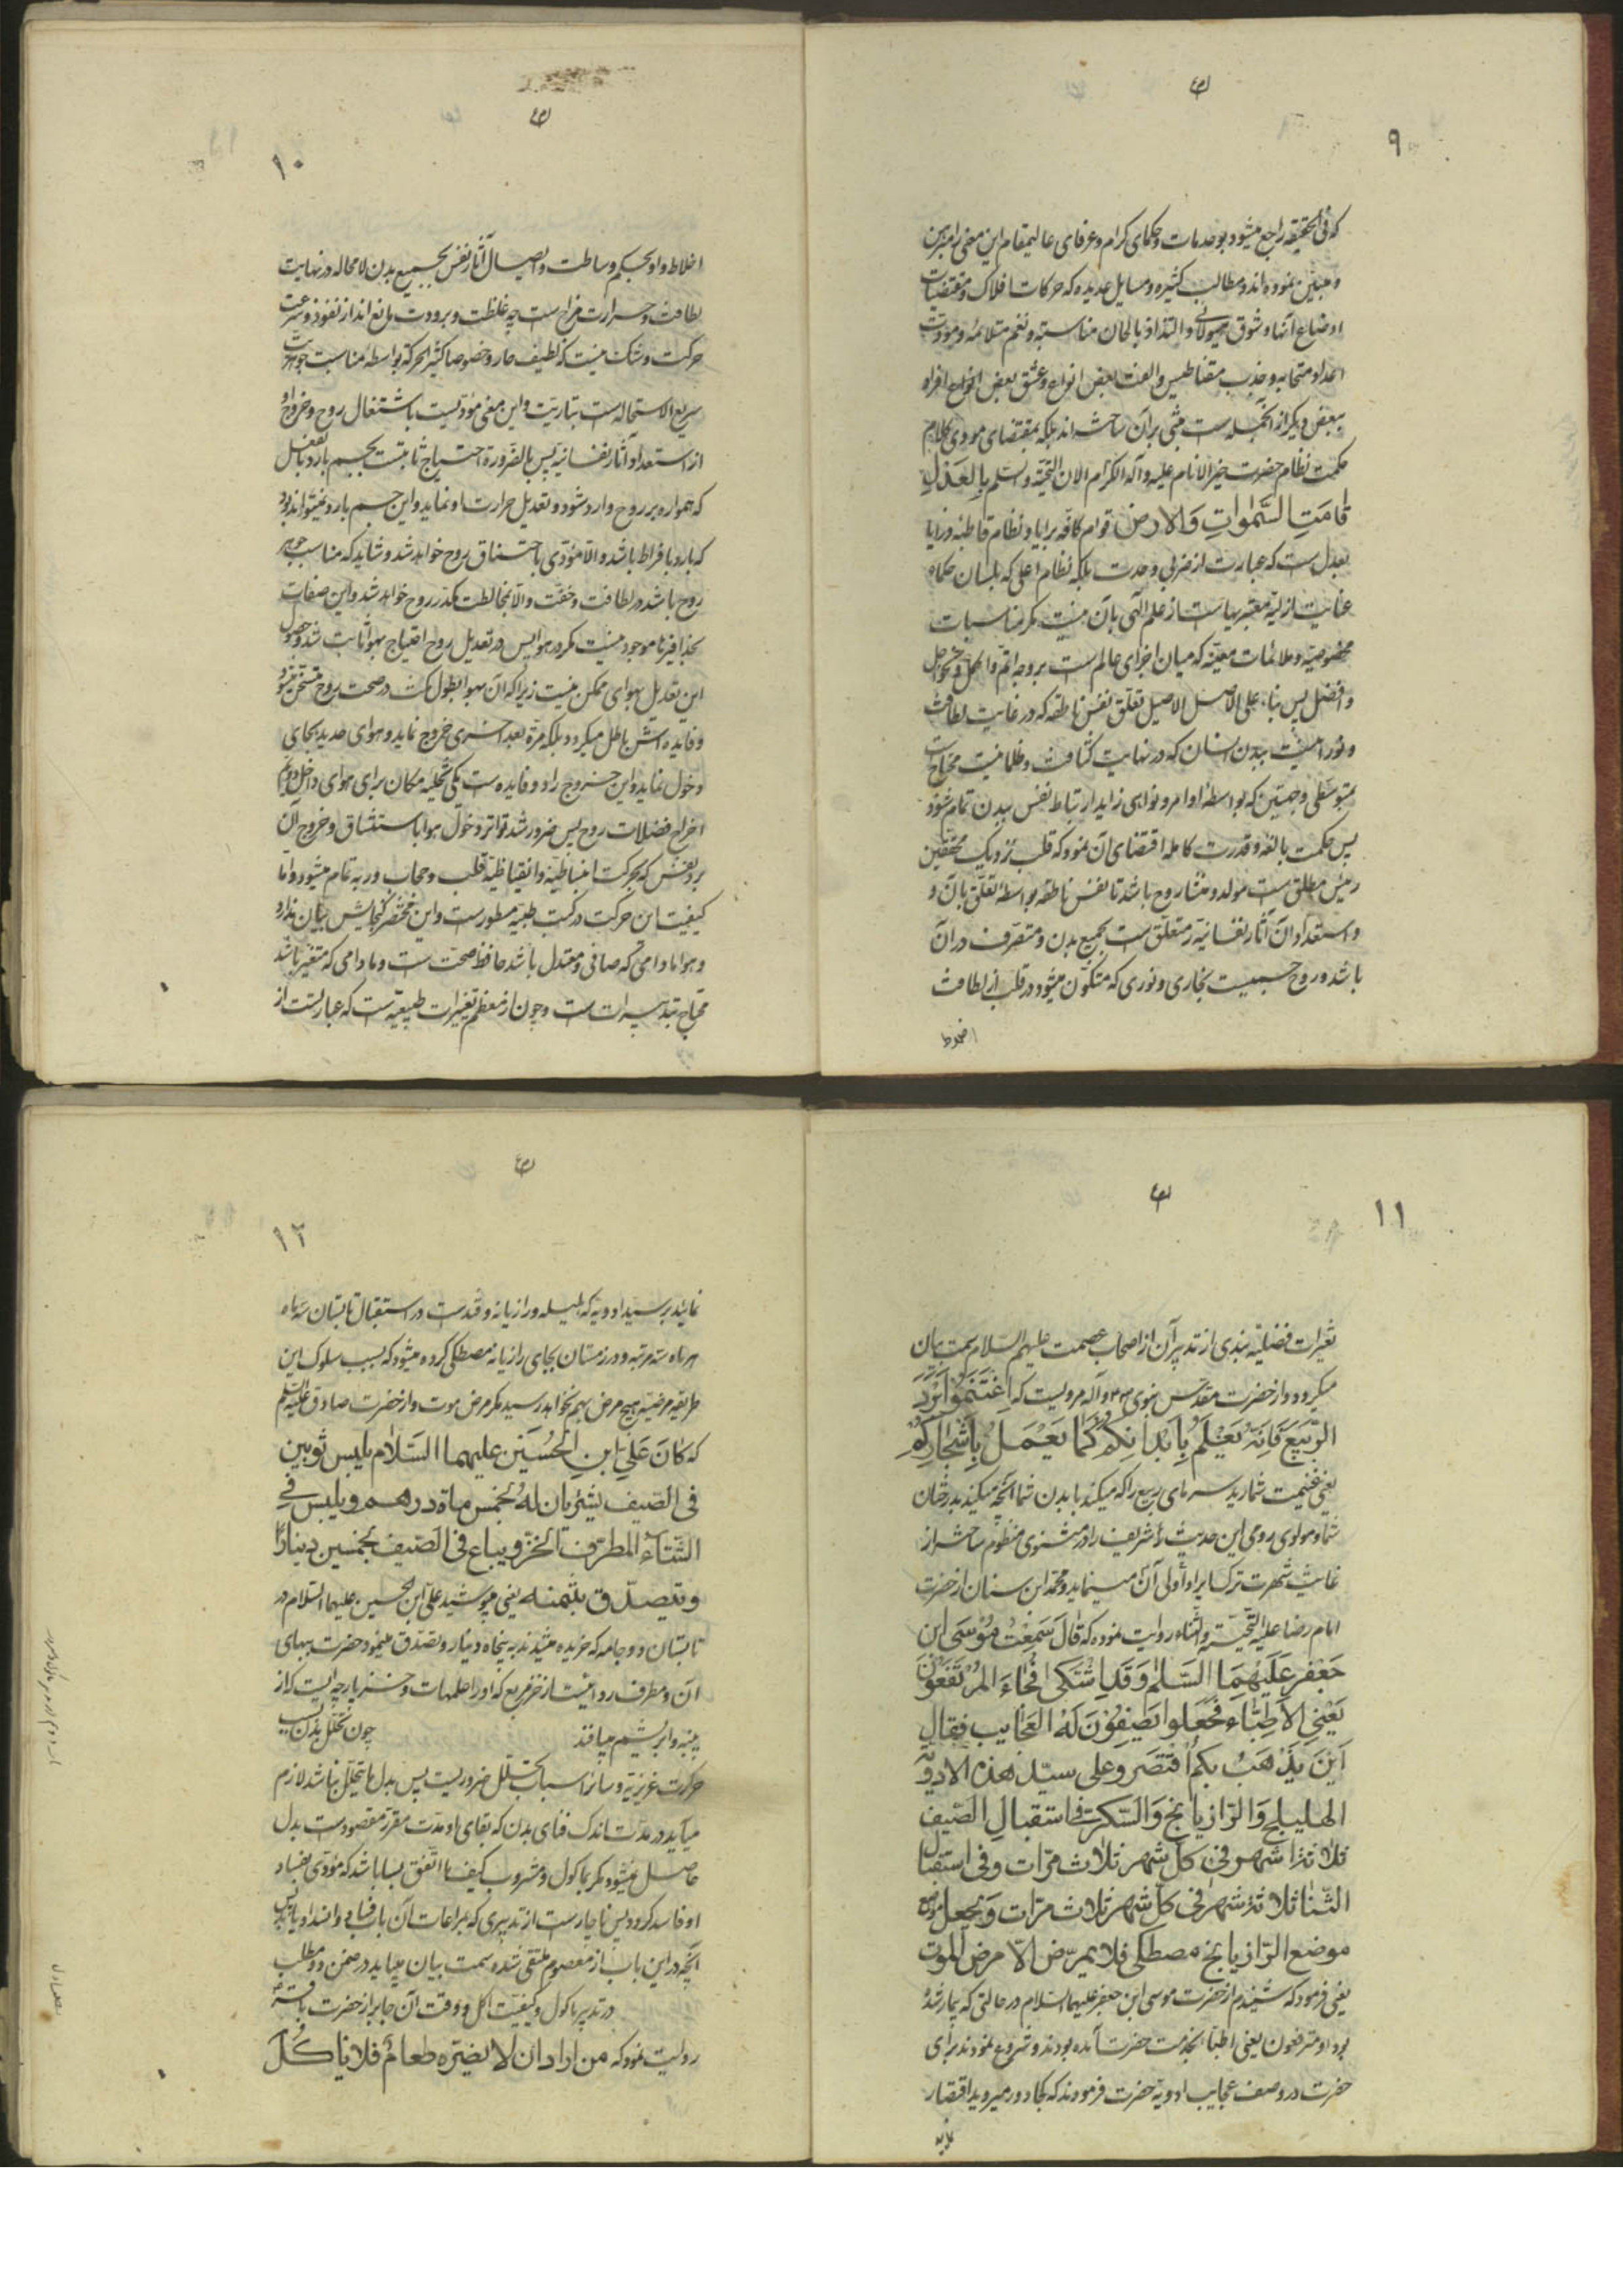 ۹
که فی الحقیقه راجع میشود بوحدمات و حکمای کرام و عرفای عالیمقام این معنی را مبرهن
و مبین نموده اند و مطالب کثیره و مسایل عدیده که حرکات افلاک و مقتضیات
اوضاع آنها و شوق هیولائی و التذاذ بالحان مناسبه و نغم متلائمه و مودت
اعداد متحابه و جذب مقناطیس و الفت بعض انواع و عشق بعض انواع افراد
ببعض دیگر از آنجمله است مبنی بر آن ساخته اند بلکه بمقتضای مودی کلام
حکمت نظام حضرت خیر الانام علیه و آله الکرام الاف التحیة و السلم بالعدل
قامت السموات والارض قوام کافه برایا و نظام قاطبه و زرایا
بعدل است که عبارت از ضربی وحدت بلکه نظام اعلی که بلسان حکماء
عنایت ازلیه معتبر بهاست از علم الهی بآن نیست مگر مناسبات
مخصوصه و ملائمات معینه که میان اجزای عالم است بر وجه اتم و اکمل و نحو اجل
و افضل پس بناء علی الاصل الاصیل تعلق نفس ناطقه که در غایت لطافت
و نورانیت ببدن انسان که در نهایت کثافت و ظلمانیت محتاجست
بتوسطی وجهتین که بواسطه اوامر و نواهی زاید ارتباط نفس ببدن تمام شود
پس حکمت بالغه و قدرت کامله اقتضای آن نمود که قلب نزدیک محققین
رئیس مطلق است مولد و منشاء روح باشد تا نفس ناطقه بواسطه تعلق بآن و
و استعداد آن آثار نفسانیه را متعلق است بجمیع بدن و متصرف در آن
باشد و روح جسمیست بخاری و نوری که متکون میشود در قلب از لطافت
اخلاط
۱۰
اخلاط و او بحکم وساطت و ایصال آثار نفس بجمیع بدن لا محاله در نهایت
لطافت و حرارت مزاج است چه غلظت و برودت مانع انداز نفوذ و سرعت
حرکت و شک نیست که لطیف حار و خصوصا کثیر الحرکة بواسطه مناسبت جوهریت
سریع الاستحاله است بناریت و این معنی مؤدیست باشتعال روح و خروج او
از استعداد آثار نفسانیه پس بالضرورة احتیاج ثابتست بجسم بارد بالفعل
که همواره بر روح وارد شود و تعدیل حرارت او نماید و این جسم بارد نمیتواند بود
که بارد بافراط باشد و الا مؤدی باختناق روح خواهد شد و شاید که مناسب جوهر
روح باشد در لطافت و خفت و الا مخالطت مکدر روح خواهد شد و این صفات
بحذافیرها موجود نیست مگر در هوا پس در تعدیل روح احتیاج بهوا ثابت شد و حصول
این تعدیل بهوای ممکن نیست زیرا که آن هوا بطول مکث در صحبت روح متسخن میشود
و فایده اش باطل میگردد بلکه مرة بعد اخری خروج نماید و هوای جدید بجای
دخول نماید و این خروج را دو فایده است یکی تخلیه مکان برای هوای داخل دویم
اخراج فضلات روح پس ضرور شد تواتر دخول هوا باستنشاق و خروج آن
برد نفس که بحرکت انبساطیه و انقباضیه قلب و حجاب و ریه تمام میشود و اما
کیفیت این حرکت در کتب طبیه مسطور است و این مختصر گنجایش بیان ندارد
و هوا مادامی که صافی و معتدل باشد حافظ صحت است و مادامی که متغیر باشد
محتاج تبدیر است و چون از معظم تغییرات طبیعیه است که عبارتست از
۱۱
تغیرات فصلیه بندی از تدبیر آن از اصحاب عصمت علیهم السلام سمت بیان
میگردد و از حضرت مقدس نبوی ص و آله مرویست که اغتنموا برد
الربیع فانه یعلم بابدانکم کما یعمل باشجارکم
یعنی غنیمت شمارید سرمای ربیع را که میکند با بدن شما آنچه میکند بدرختان
شما و مولوی رومی این حدیث شریف را در مثنوی منظوم ساخته از
غایت شهرت ترک ایراد اولی آن که مینماید و محمد ابن سنان از حضرت
امام رضا علیه التحیة و الثناء روایت نموده که قال سمعت موسی ابن
جعفر علیهما السلم وقد اشتکی فجاء المرتفعون
یعنی الاطباء فجعلوا یصفون له العجایب فقال
این یذهب بکم اقتصروا علی سید هذه الادویة
الهلیلج والرازیانج والسکر فی استقبال الصیف
ثلاثة اشهر فی کل شهر ثلاث مرات وفی استقبال
الشتا ثلاثة شهر فی کل شهر ثلاث مرات ویجعل موضع
موضع الرازیانج مصطکی فلا یمرض الا مرض الموت
یعنی فرمود که شنیدم از حضرت موسی ابن جعفر علیهما السلام در حالتی که بیمار شده
بود او مترفعون یعنی اطبا بخدمت حضرت آمده بودند و شروع نمودند برای
حضرت در وصف عجایب ادویه حضرت فرمودند که بکجا دور میروید اقتصار
نماید
۱۲
نمایند بر سید ادویه که هلیله و رازیانه و قندست در استقبال تابستان سه ماه
هر ماه سه مرتبه و در زمستان بجای رازیانه مصطکی کرده میشود که بسبب سلوک این
طریقه مرضیه هیچ مرض بهم نخواهد رسید مگر مرض موت و از حضرت صادق علیه السلم
که کان علی ابن الحسین علیهما السلام یلبس ثوبین
فی الصیف یشتریان له بخمس ماة درهم ویلبس فی
الشتاء المطرف الخز ویباع فی الصیف بخمسین دینارا
ویتصدق بثمنه یعنی میپوشید علی ابن الحسین علیهما السلام در
تابستان دو جامه که خریده میشدند به پنجاه دینار و تصدق مینمود حضرت ببهای
آن و مطرف ردائیست از خز مربع که او را علمهات و خز پارچه ایست که از
پنبه و ابریشم میبافند چون تحلل بدن بسبب
حرارت غریزیه و سائر اسباب تحلل ضروریست پس بدل ما یتحلل نباشد لازم
میآید در مدت اندک فنای بدن که بقای او مدت مقرر مقصود است بدل
حاصل نمیشود مگر بماکول و مشروب کیف ما اتفق بسا باشد که مؤدی بفساد
او فاسد گردد پس ناچار است از تدبیری که بمراعات آن باب فنا و انسداد یابد پس
آنچه در این باب از معصوم متلقی شده سمت بیان مییابد در ضمن دو مطلب
در تدبیر ماکول و کیفیت اکل و وقت آن جابر از حضرت باقر ع
روایت نمود که من اراد ان لا یضره طعام فلا یاکل